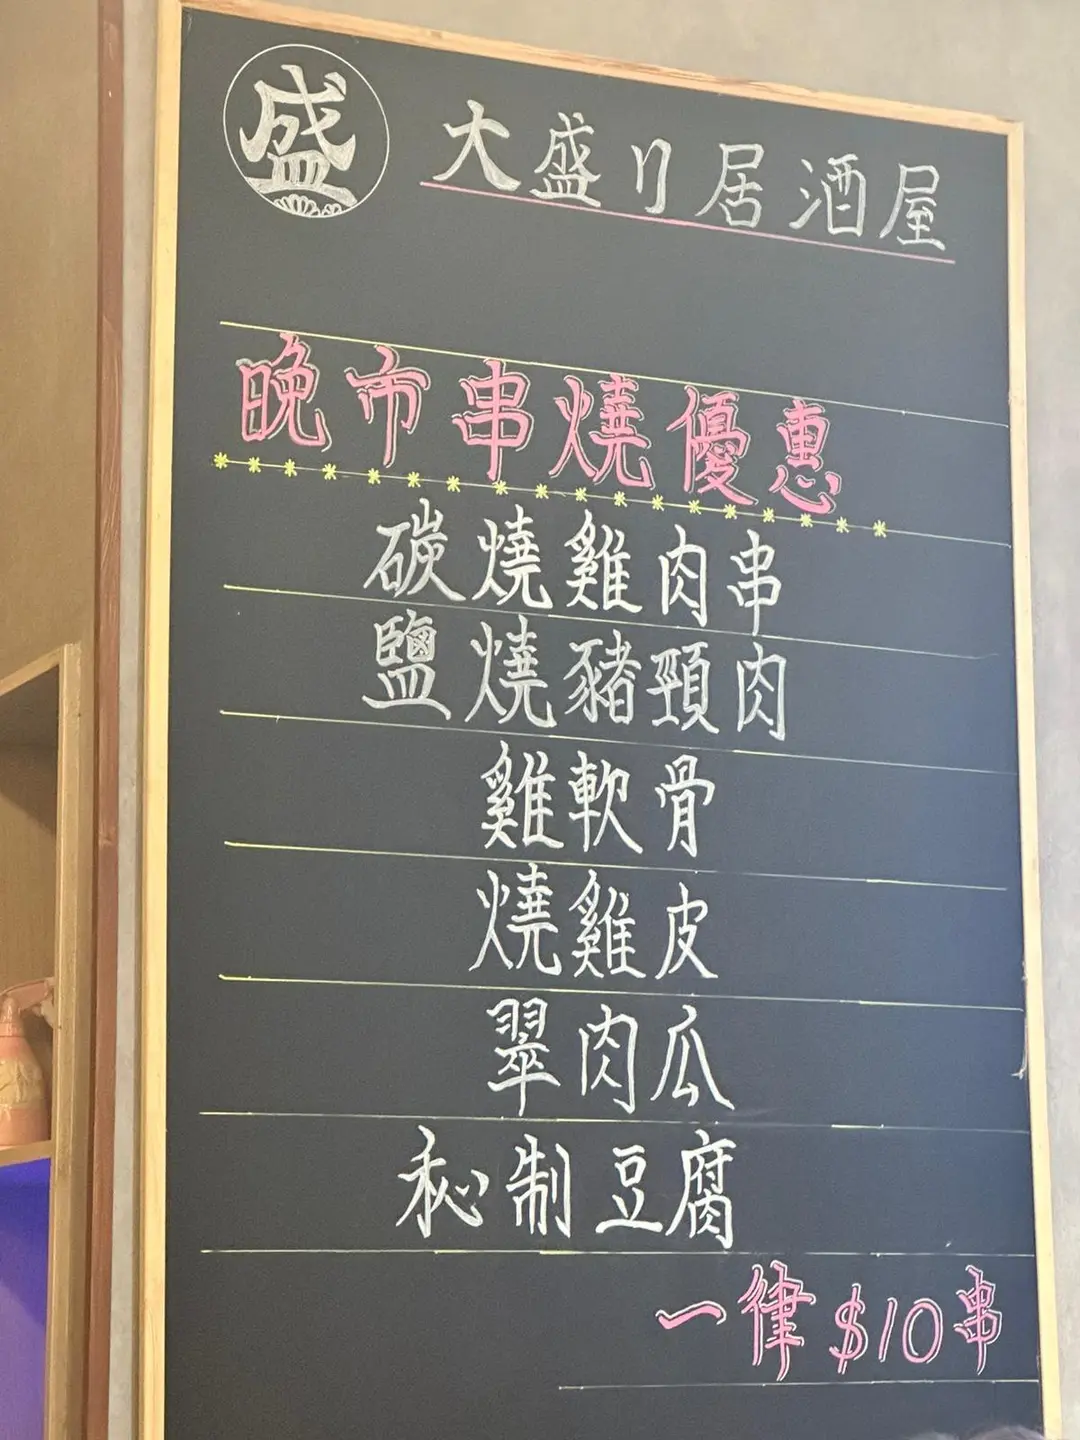 盛
大盛り居酒屋
晚市串燒優惠
碳燒雞肉串
鹽燒豬頸肉
雞軟骨
燒雞皮
翠肉瓜
秘制豆腐
一律$10串